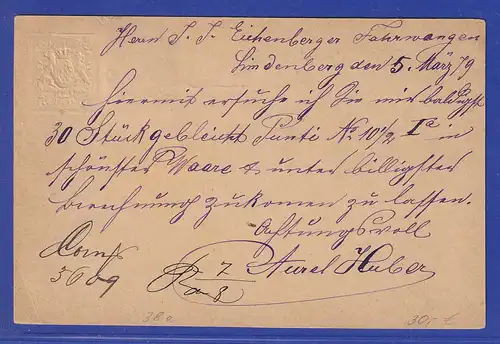 Herrn J. J. Eichenberger Fahrwangen
Lindenberg den 5. März 79
Hiermit ersuche ich Sie mir baldigst
30 Stück gebleicht Punti No 10 1/2 Ia in
schönster Waare & unter billigster
Berechnung zukomen zu lassen.
Achtungsvoll
Aurel Huber
5609
7
3
38 a
30,- €